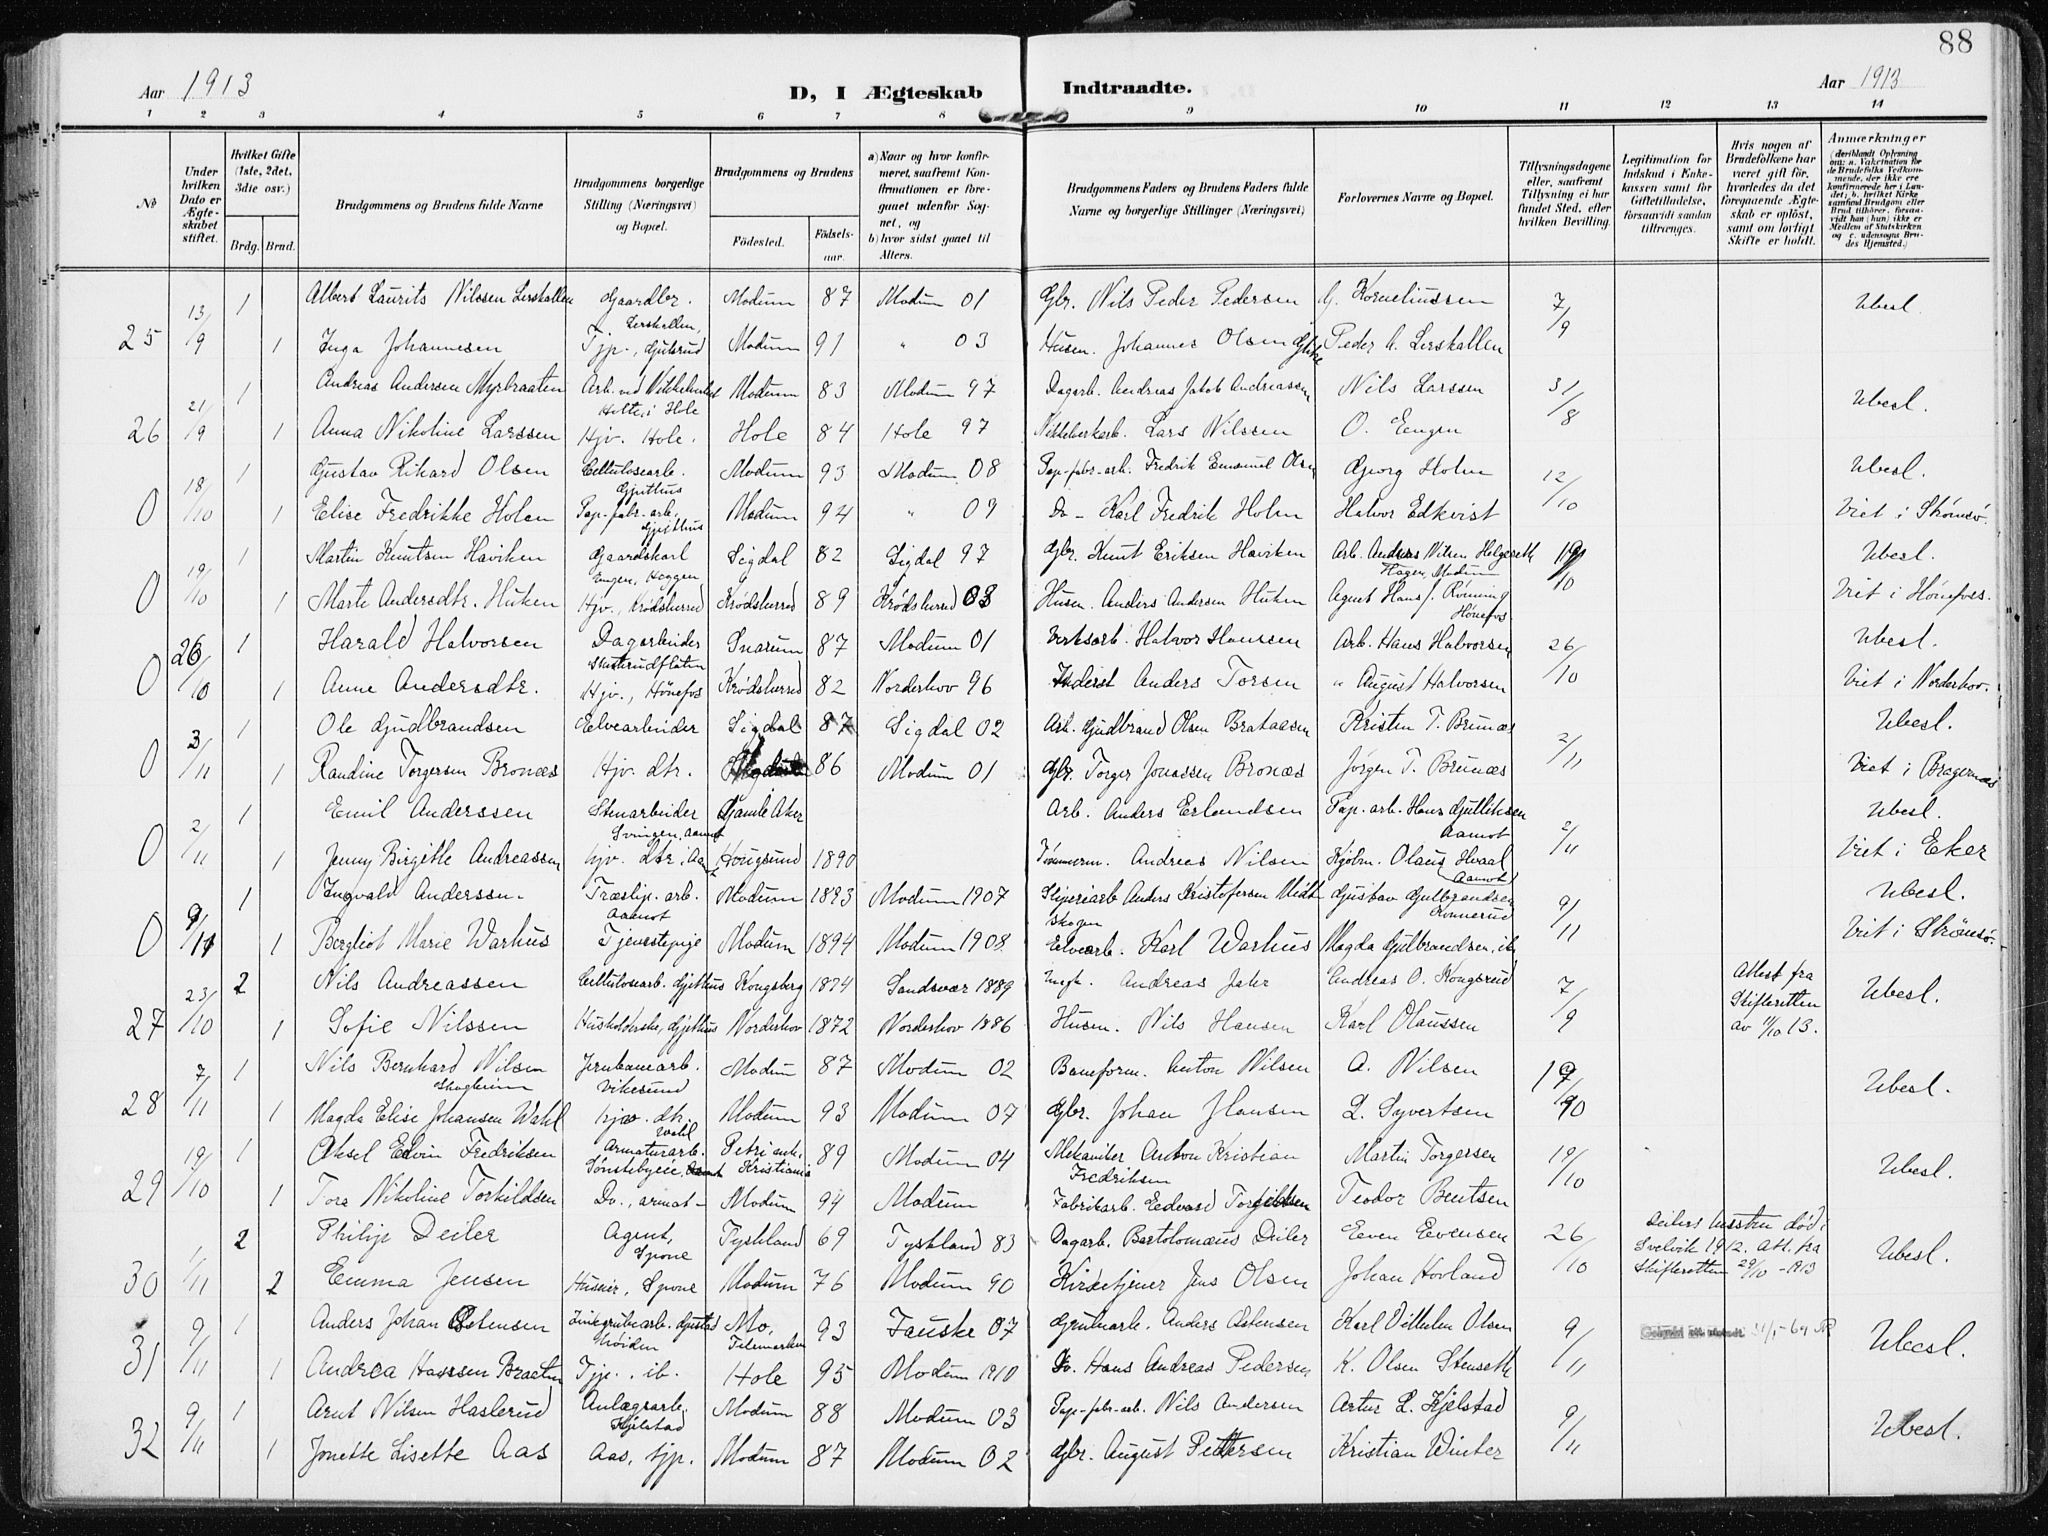 88
Aar 1913 D, I Ægteskab Indtraadte. Aar 1913
1 2 3 4 5 6 7 8 9 10 11 12 13 14
No
Under hvilken Dato er Ægteskabet stiftet.
Hvilket Gifte (1ste, 2det, 3die osv.)
Brdg. Brud.
Brudgommens og Brudens fulde Navne
Brudgommens borgerlige Stilling (Næringsvei) og Bopæl.
Brudgommens og Brudens
Fødested. Fødselsaar.
a) Naar og hvor konfirmeret, saafremt Konfirmationen er foregaaet udenfor Sognet, og
b) hvor sidst gaaet til Alters.
Brudgommens Faders og Brudens Faders fulde Navne og borgerlige Stillinger (Næringsvei)
Forlovernes Navne og Bopæl.
Tillysningsdagene eller, saafremt Tillysning ei har fundet Sted, efter hvilken Bevilling.
Legitimation for Indskud i Enkekassen samt for Giftetilladelse, forsaavidt saadan tiltrænges.
Hvis nogen af Brudefolkene har været gift før, hvorledes da det foregaaende Ægteskab er opløst, samt om lovligt Skifte er holdt.
Anmærkninger (deriblandt Oplysning om: a. Vakcination for de Brudefolks Vedkommende, der ikke ere konfirmerede her i Landet; b. hvilket Kirkesamfund Brudgom eller Brud tilhører, forsaavidt han (hun) ikke er Medlem af Statskirken og c. udensogns Brudes Hjemsted.)
13/9 1 Albert Laurits Nilssen Lerskallen Gaardbr. Lerskallen, Modum 87 Modum 01 Gbr. Nils Peder Pedersen G. Korneliussen 7/9 Ubesl.
25 1 Inga Johannesen Tjp., Gulsrud Modum 91 " 03 Husm. Johannes Olsen Peder A. Lerskallen
21/9 1 Andreas Andersen Myrbraaten Arb. ved Nikkelverket Holte, i Hole Modum 83 Modum 97 Dagarb. Andreas Jakob Andreassen Nils Larssen 31/8 Ubesl.
26 1 Anna Nikoline Larssen Hjv. Hole. Hole 84 Hole 97 Nikkelverkarb. Lars Nilssen O. Engen
18/10 1 Gustav Rikard Olsen Cellulosearb. Gjethus Modum 93 Modum 08 Pap-fabr-arb. Fredrik Emanuel Olsen Georg Holm 12/10 Ubesl.
0 1 Elise Fredrikke Holm Pap-fabr-arb, Gjethus Modum 94 " 09 Do - Karl Fredrik Holm Halvor Edkvist Viet i Strømsø.
19/10 1 Martin Knutsen Haviken Gaardskarl Engen, Heggen Sigdal 82 Sigdal 97 Gbr. Knut Eriksen Haviken Arb. Anders Nilsen Helgeseth Hagen, Modum 19/10 Ubesl.
0 1 Marte Andersdtr. Huken Hjv., Krødsherred Krødsherred 89 Krødsherred 03 Husm. Anders Andersen Huken Agent Hans J. Rönning Hönefos. Viet i Hönefoss.
26/10 1 Harald Halvorsen Dagarbeider Skuterudflaten Snarum 87 Modum 01 Verksarb. Halvor Hanssen Arb. Hans Halvorsen 26/10 Ubesl.
0 1 Anne Andersdtr. Hjv., Hönefos Krødsherred 82 Norderhov 96 Inderst Anders Torsen " August Halvorsen Viet i Norderhov.
3/11 1 Ole Gudbrandsen Elvearbeider Sigdal 87 Sigdal 02 Arb. Gudbrand Olsen Brataasen Kristen T. Brunæs 2/11 Ubesl.
0 1 Randine Torgersen Bronæs Hjv. dtr. 86 Modum 01 Gbr. Torger Jonassen Bronæs Jörgen T. Brunæs Viet i Bragernæs
2/11 1 Emil Anderssen Stenarbeider Svingen, Aamot Gamle Aker Arb. Anders Erlandsen Pap. arb. Hans Gulliksen Aamot 2/11 Ubesl.
0 1 Jenny Birgitte Andreassen hjv. dtr. i Aamot Hougsund 1890 Tömmerm. Andreas Nilsen Kjöbm. Olaus Hvaal (Aamot) Viet i Eker
9/11 1 Ingvald Anderssen. Træslip. arb. Aamot Modum 1893 Modum 1907 Sliperiarb Anders Kristofersen Midtskogen Gustav Gulbrandsen Ronnerud 9/11 Ubesl.
0 1 Bergliot Marie Warhus Tjenestepige Modum 1894 Modum 1908 Elvearb. Karl Warhus Magda Gulbrandsen, ib. Viet i Strømsø.
23/10 2 Nils Andreassen Cellulosearb. Gjethus Kongsberg 1874 Sandsvær 1889 Andreas Jahr Andreas O. Kongsrud 7/9 Attest fra Skifteretten av 11/10 13. Ubesl.
27 1 Sofie Nilssen Husholderske, Gjethus Norderhov 1872 Norderhov 1886 Husm. Nils Hansen Karl Olaussen
7/11 1 Nils Bernhard Nilsen Skogheim Jernbanearb. Vikesund Modum 87 Modum 02 Baneform. Anton Nilsen A. Nilsen 19/10 Ubesl.
28 1 Magda Elise Johansen Wahl hjv. dtr. Wahl Modum 93 Modum 07 Gbr. Johan Hansen L. Syvertsen
19/10 1 Aksel Edvin Fredriksen Armaturarb. Sønstebyeie, Aamot Petri mh. Kristiania 89 Modum 04 Mekaniker Anton Kristian Fredriksen Martin Torgersen 19/10 Ubesl.
29 1 Tora Nikoline Torkildsen Do., armat- Modum 94 Modum Fabrikarb. Edvard Torgilsen Teodor Bentsen
1/11 2 Philip Deiler Agent, Spone Tyskland 69 Tyskland 83 Dagarb. Bartolomæus Deiler Even Evensen 26/10 Deilers hustru död i Svelvik 1912. Att. fra Skifteretten 29/10 - 1913 Ubesl.
30 2 Emma Jensen Husmor, Spone Modum 76 Modum 90 Kirketjener Jens Olsen Johan Hovland
9/11 1 Anders Johan Østensen Zinkgrubearb. Gustad Mo, Telemarken 93 Fauske 07 Grubearb. Anders Østensen Karl Vilhelm Olsen 9/11 31/1-64 Ubesl.
31 1 Andrea Hanssen Braaten Tjp., ib. Hole 95 Modum 1910 Do. Hans Andreas Pedersen K. Olsen Stenseth
9/11 1 Arnt Nilsen Haslerud Anlægsarb. Kjølstad Modum 88 Modum 03 Pap-fabr-arb. Nils Andersen Artur L. Kjølstad 9/11 Ubesl.
32 1 Jonette Lisette Aas Aas, tjp. Modum 87 Modum 02 Gbr. August Pettersen Kristian Winter